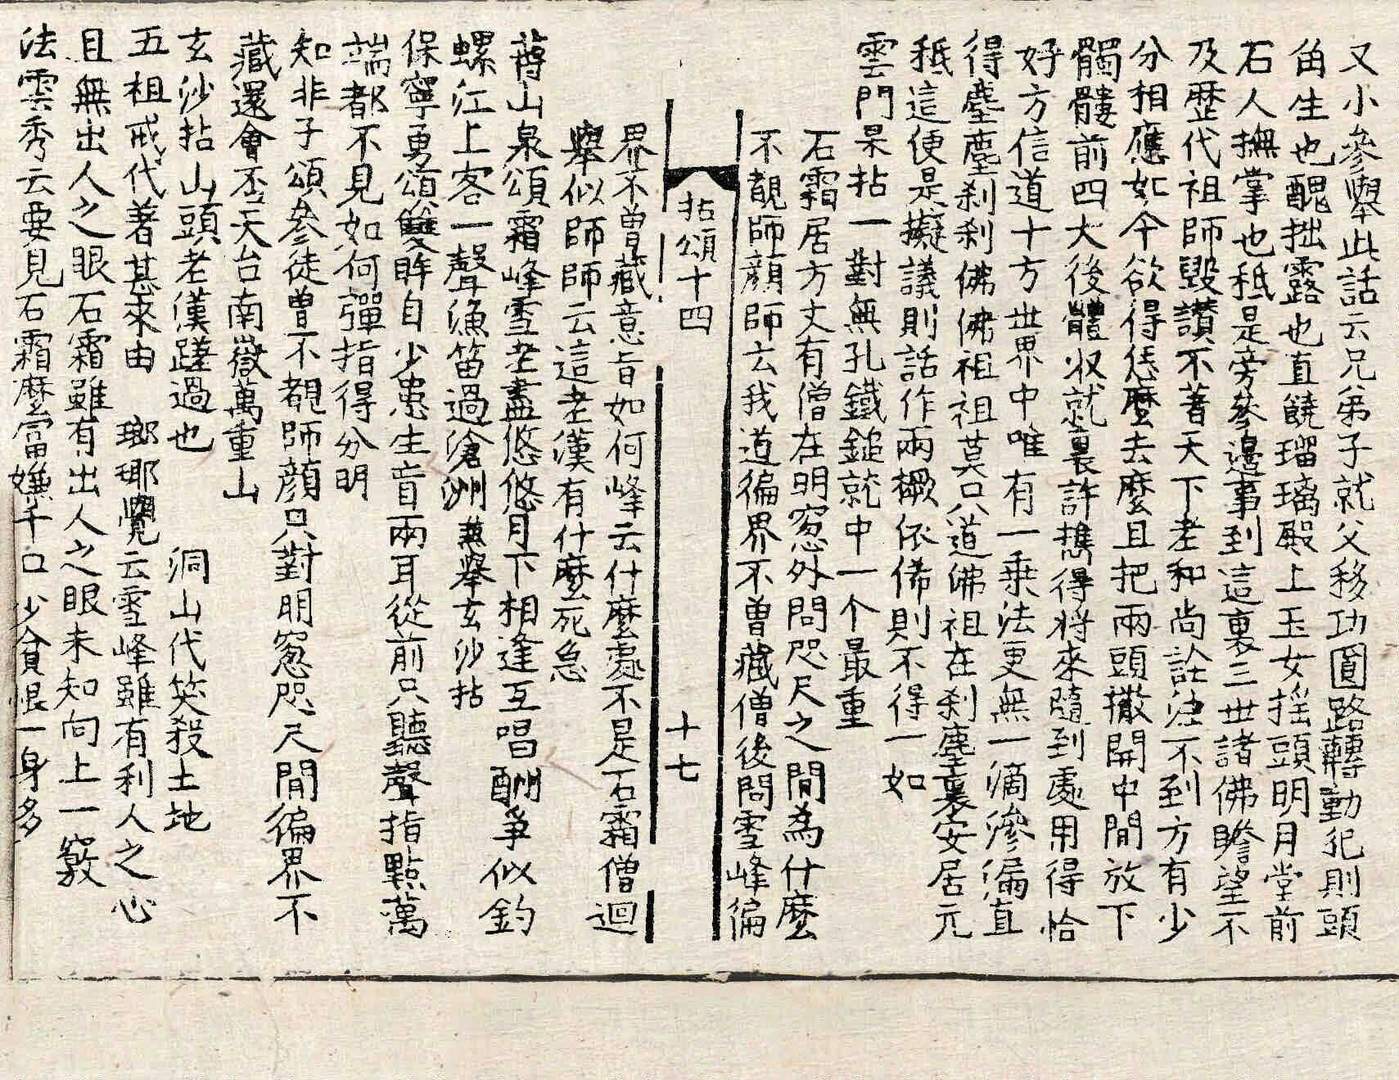 又小參舉此話云兄弟子就父移功圓路轉動犯則頭
角生也醜拙露也直饒瑠璃殿上玉女搖頭明月堂前
石人撫掌也秪是旁參邊事到這裏三世諸佛瞻望不
及歷代祖師毀讚不著天下老和尚詮注不到方有少
分相應如今欲得恁麼去麼且把兩頭撒開中間放下
髑髏前四大後體收就裏許擕得將來隨到處用得恰
好方信道十方世界中唯有一乘法更無一滴滲漏直
得塵塵刹刹佛佛祖祖莫只道佛祖在刹塵裏安居元
秪這便是擬議則話作兩橛依俙則不得一如
雲門杲拈一對無孔鐵鎚就中一个最重
石霜居方丈有僧在明窓外問咫尺之間為什麼
不覩師顔師云我道徧界不曾藏僧後問雪峰徧
拈頌十四
十七
界不曾藏意旨如何峰云什麼處不是石霜僧迴
舉似師師云這老漢有什麼死急
蔣山泉頌霜峰雪老盡悠悠月下相逢互唱酬爭似釣
螺江上客一聲漁笛過滄洲兼舉玄沙拈
保寧勇頌雙眸自少患生盲兩耳從前只聽聲指點萬
端都不見如何彈指得分明
知非子頌參徒曾不覩師顔只對明窓咫尺間徧界不
藏還會否天台南嶽萬重山
玄沙拈山頭老漢蹉過也　洞山代笑殺土地
五祖戒代著甚來由　瑯琊覺云雪峰雖有利人之心
且無出人之眼石霜雖有出人之眼未知向上一竅
法雲秀云要見石霜麼富嫌千口少貧恨一身多